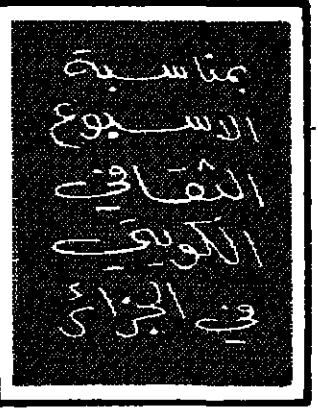 بمناسبة
الاسبوع
الثقافي
الكويتي
في الجزائر